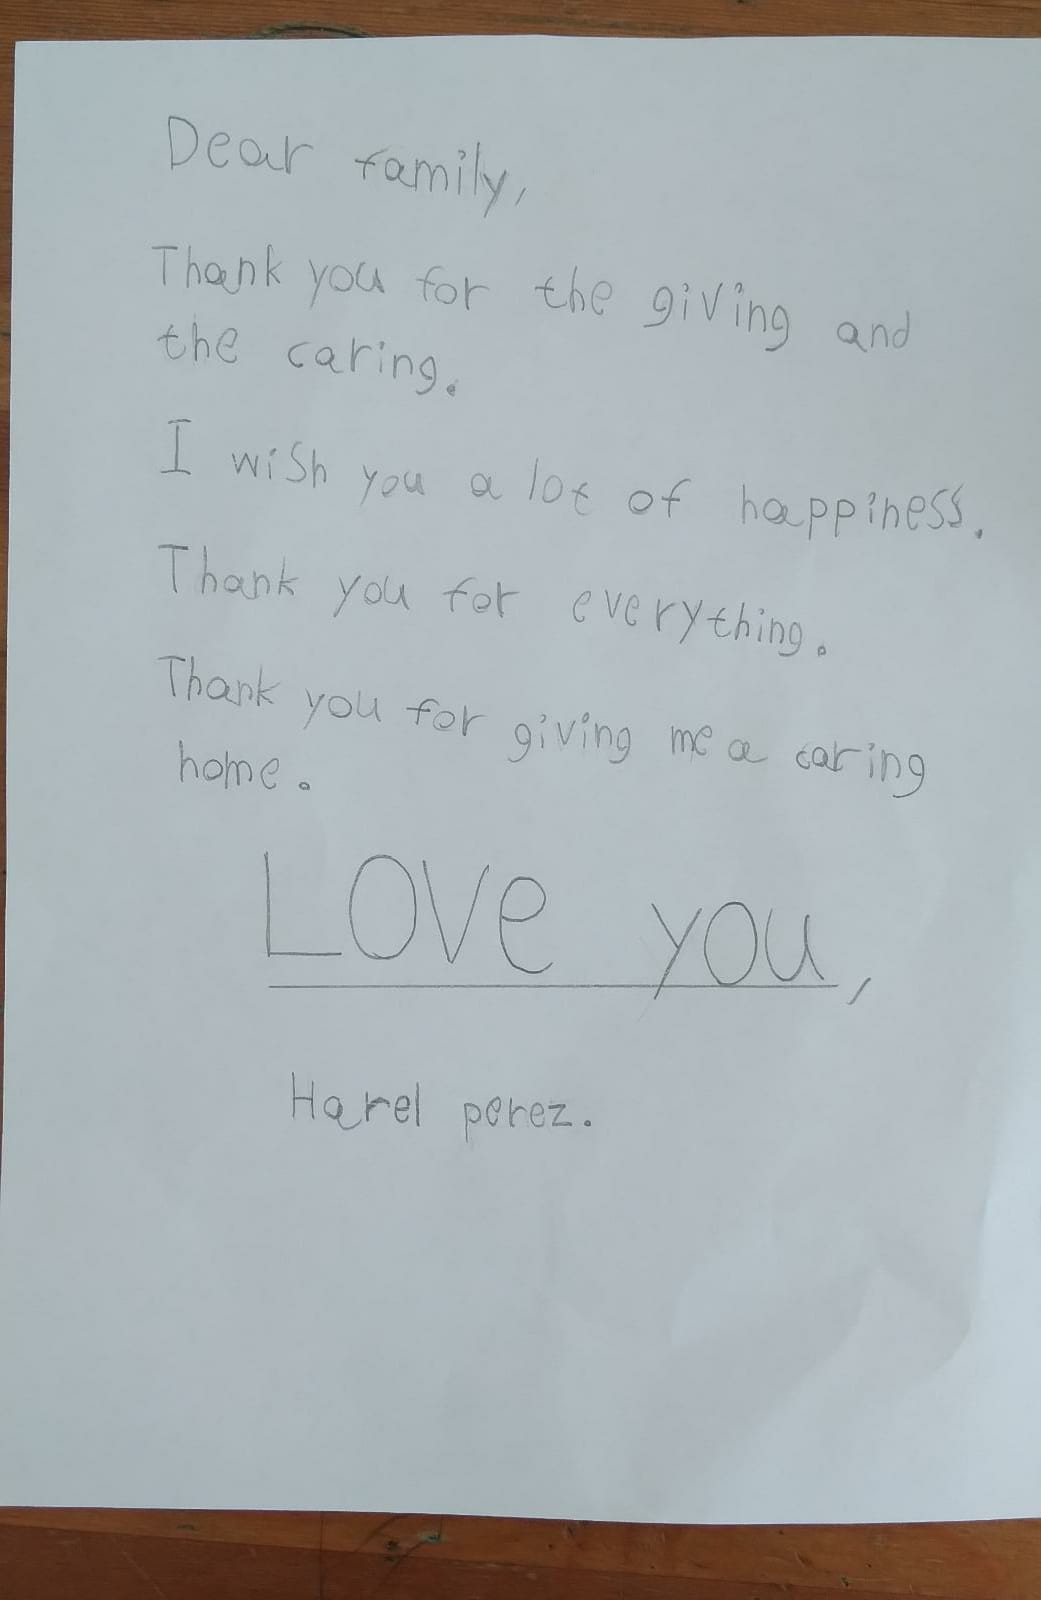 Dear family,
Thank you for the giving and
the caring.
I wish you a lot of happiness.
Thank you for everything.
Thank you for giving me a caring
home.
Love you,
Harel perez.